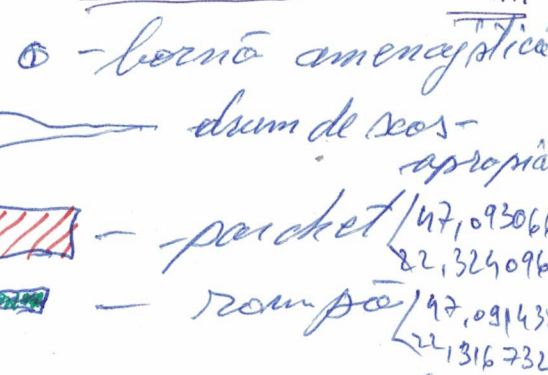 - bornă amenajistică
drum de scos-
apropia
- parchet 47,09306
22,324096
- rampă 47,09143
22,316732